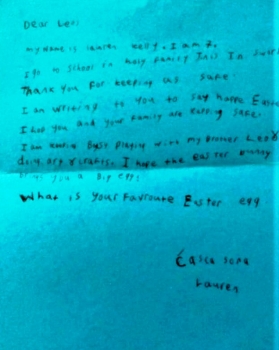 Dear Leo:
my name is Lauren Kelly. I am 7.
in School in holy Family
Thank you For keeping us Safe.
I am writing to you to say happe Easte
I hop you and your Family are keeping safe.
I am busy playing with my Brother Leo
doing art & crafts. I hope the easter bunny
you a big egg!
What is your Favroute Easter egg
Casca sona
Lauren